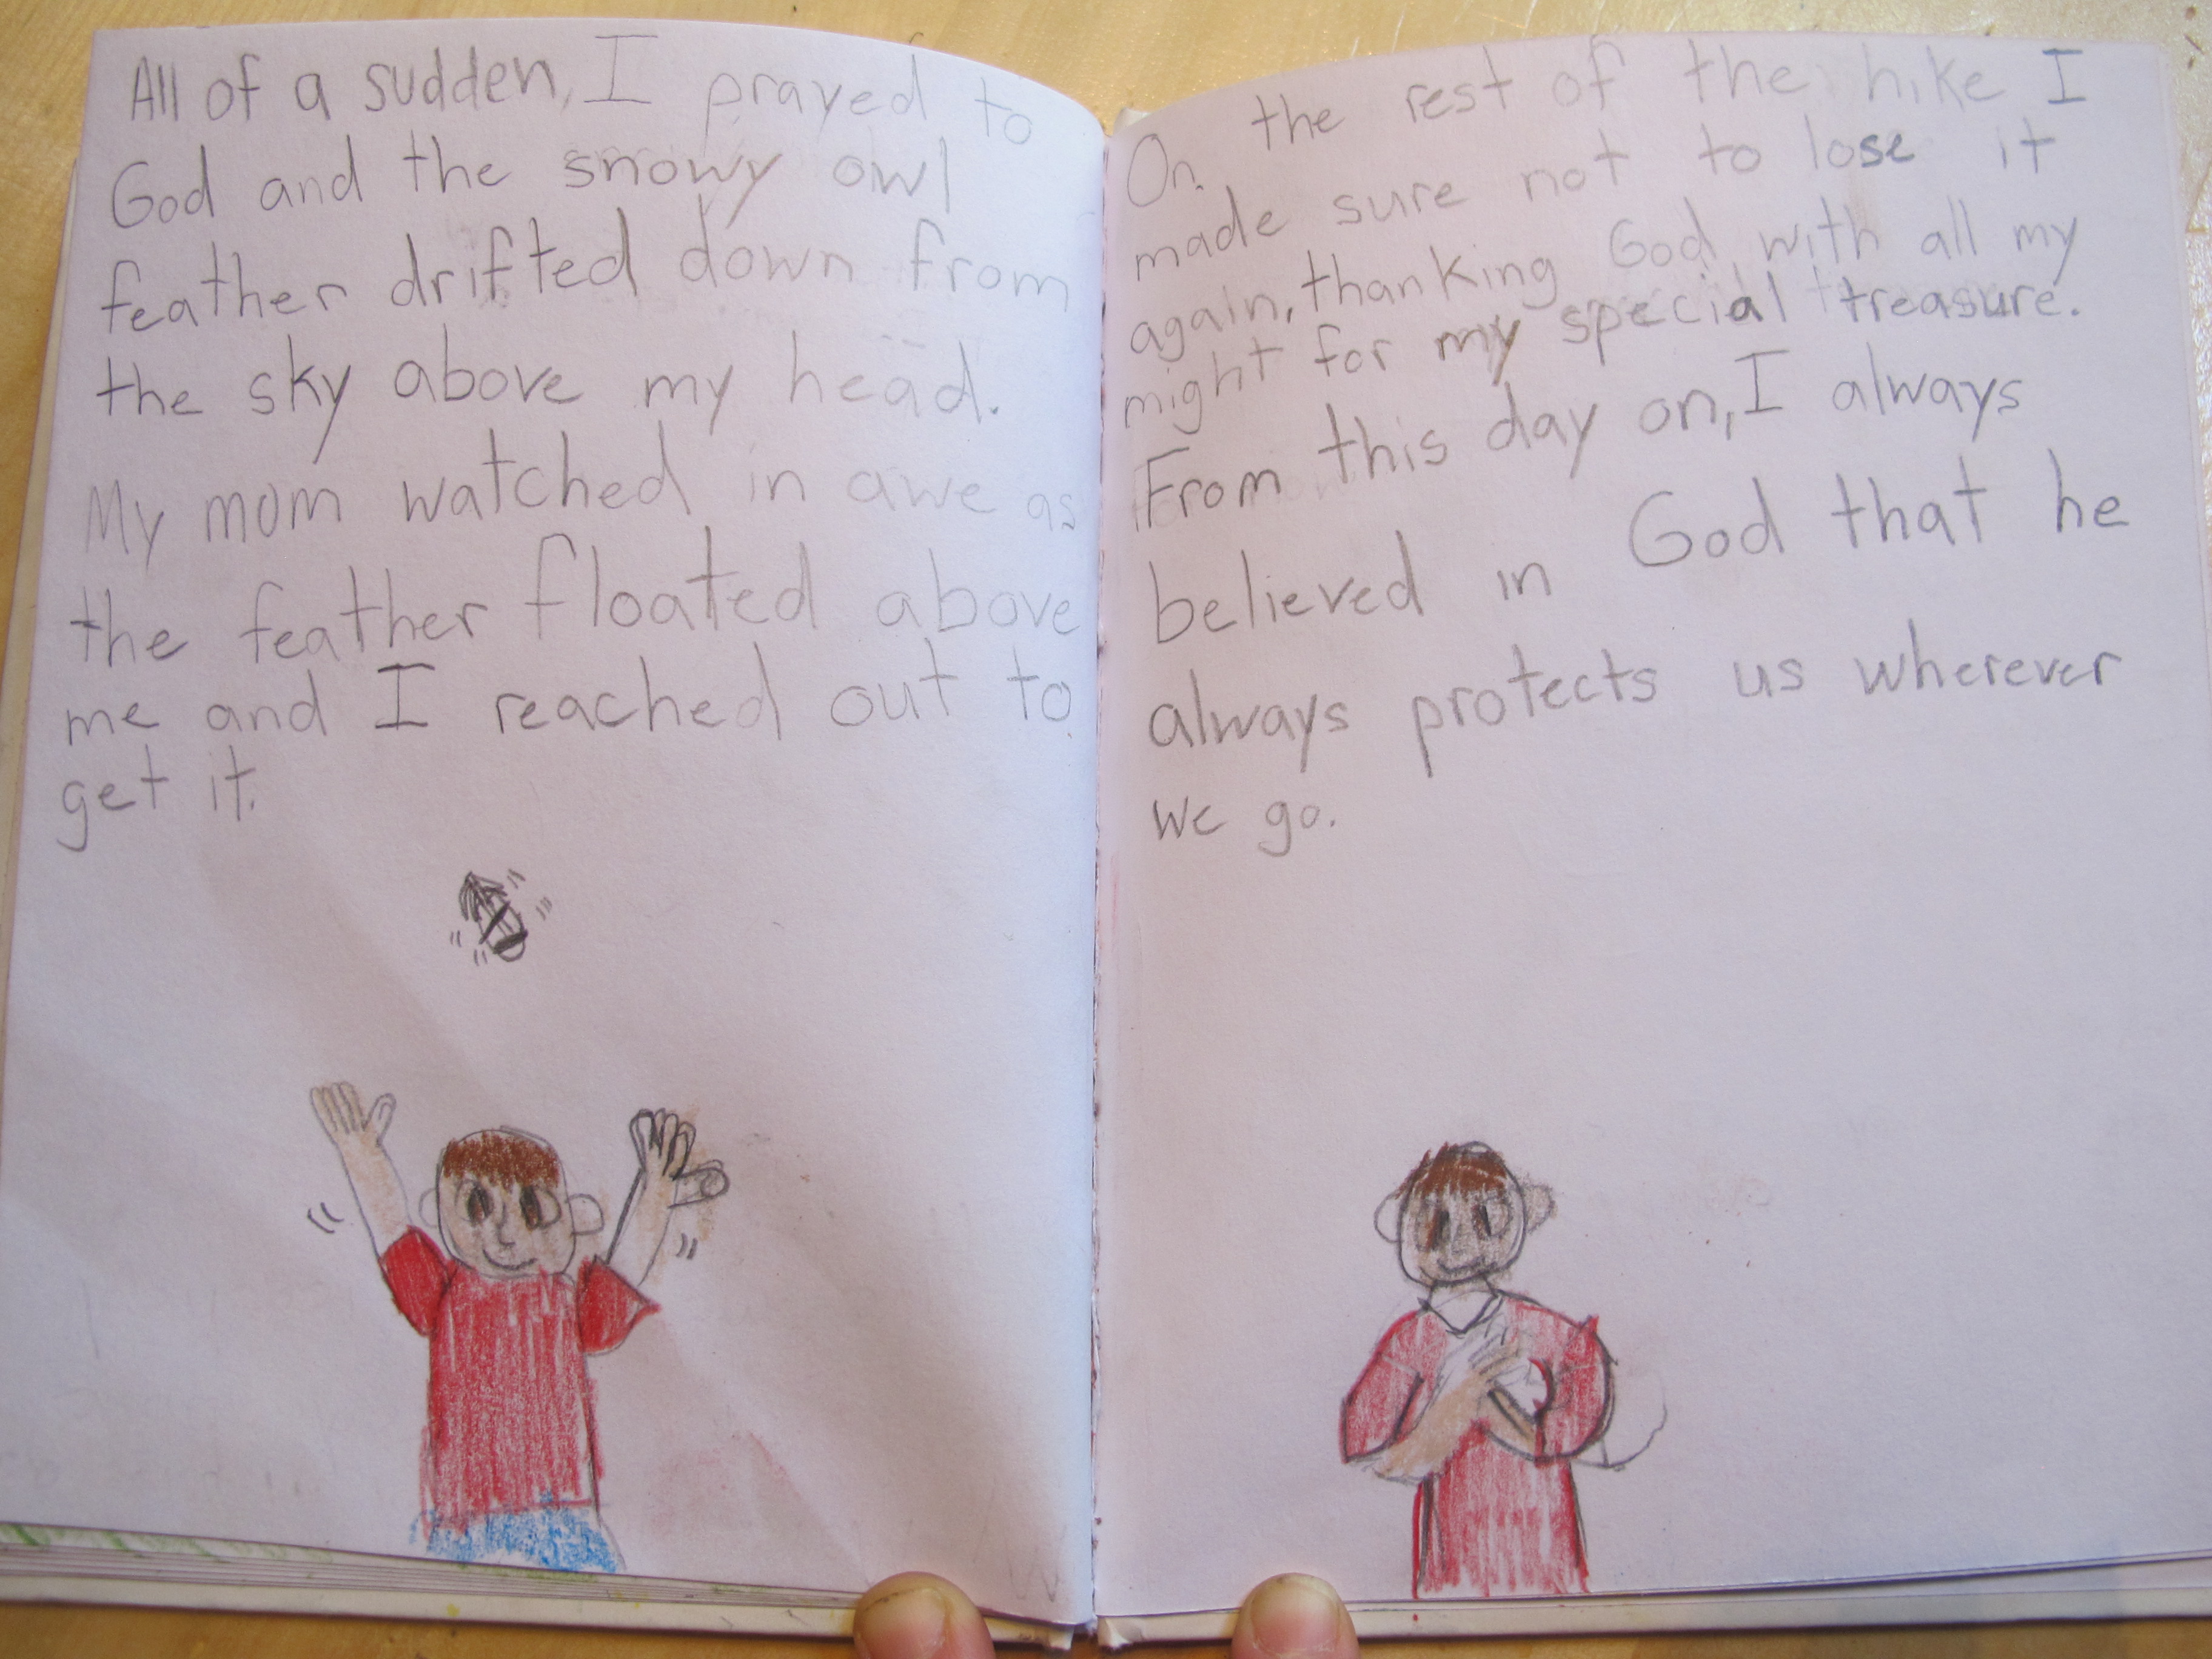 All of a sudden, I prayed to
God and the snowy owl
feather drifted down from
the sky above my head.
My mom watched in awe as
the feather floated above
me and I reached out to
get it.
On the rest of the hike I
made sure not to lose it
again, thanking God with all my
might for my special treasure.
From this day on, I always
believed in God that he
always protects us wherever
we go.